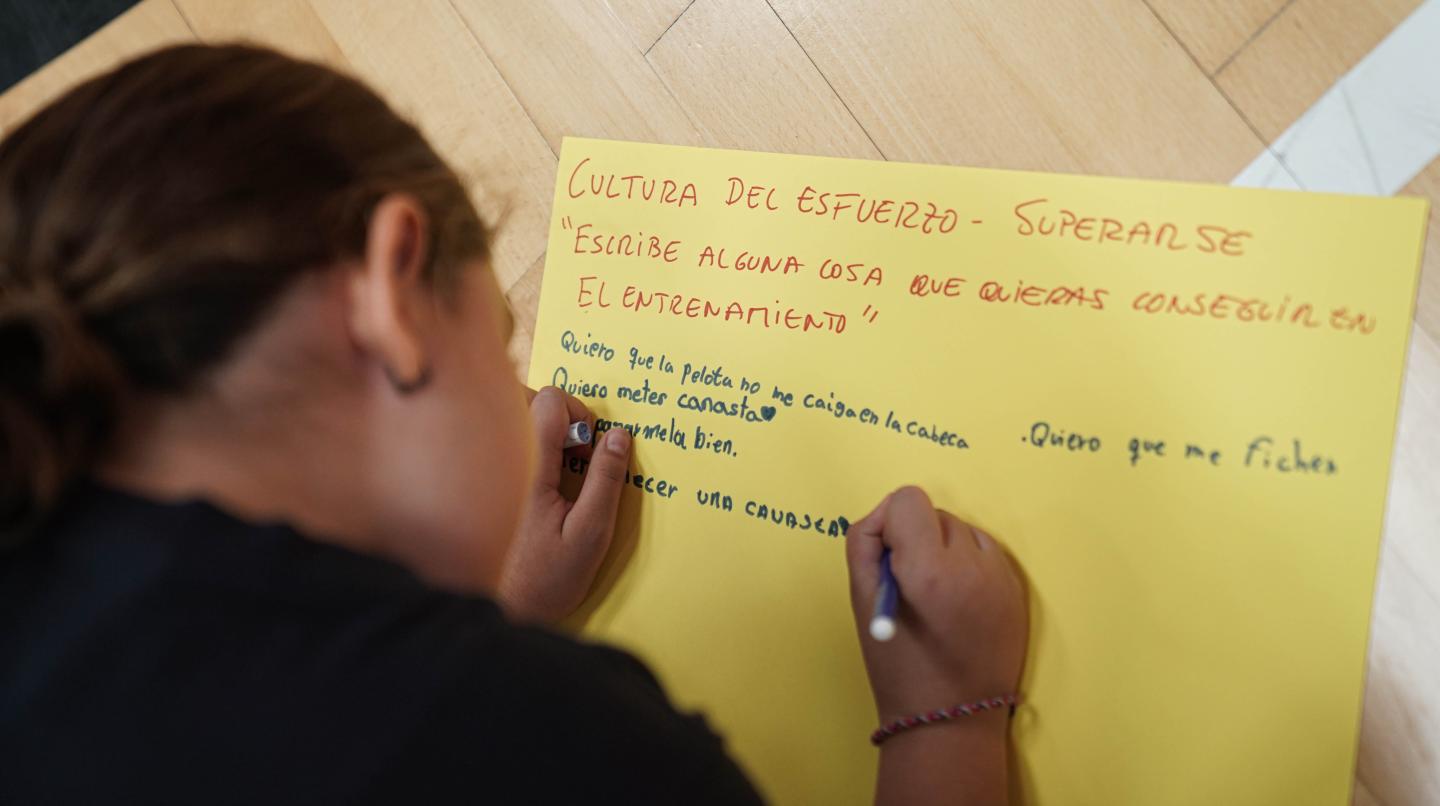 CULTURA DEL ESFUERZO - SUPERARSE
"ESCRIBE ALGUNA COSA QUE QUIERAS CONSEGUIR EN
EL ENTRENAMIENTO"
Quiero que la pelota no me caiga en la cabeca
Quiero meter canasta♥
bien.
UNA
.Quiero que me fichen